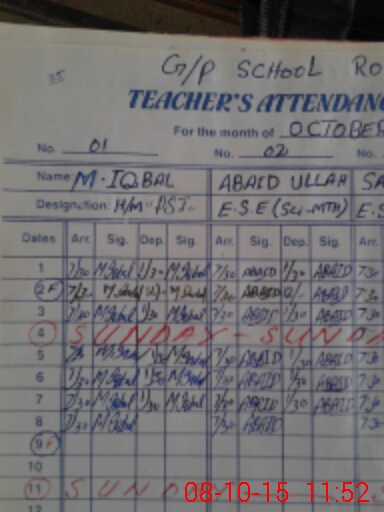 G/P SCHOOL RO
TEACHER'S ATTENDANC
For the month of OCTOBER
No. 01 No. 02 No.
Name M. IQBAL ABAID ULLAH SA
Designation: H/M PST. E.S.E (Sci-MTH) E.S
Dates Arr. Sig. Dep. Sig. Arr. Sig. Dep. Sig. Arr.
1 7/30 M.Iqbal 1/30 M.Iqbal 7/30 ABAID 1/30 ABAID 7:30
2 F M.Iqbal M.Iqbal ABAID 12/- ABAID
3 7/30 M.Iqbal 1/30 M.Iqbal 7/30 ABAID 1/30 ABAID 7:30
4 SUNDAY - SUNDA
5 M.Iqbal 1/30 M.Iqbal 7/30 ABAID 1/30 ABAID 7:30
6 7/30 M.Iqbal 1/30 M.Iqbal 7/30 ABAID 1/30 ABAID 7:30
7 7/30 M.Iqbal 1/30 M.Iqbal 7/30 ABAID 1/30 ABAID 7:30
8 7/30 M.Iqbal 7/30 ABAID 7:30
9 F
10
11 SUND
12
08-10-15 11:52